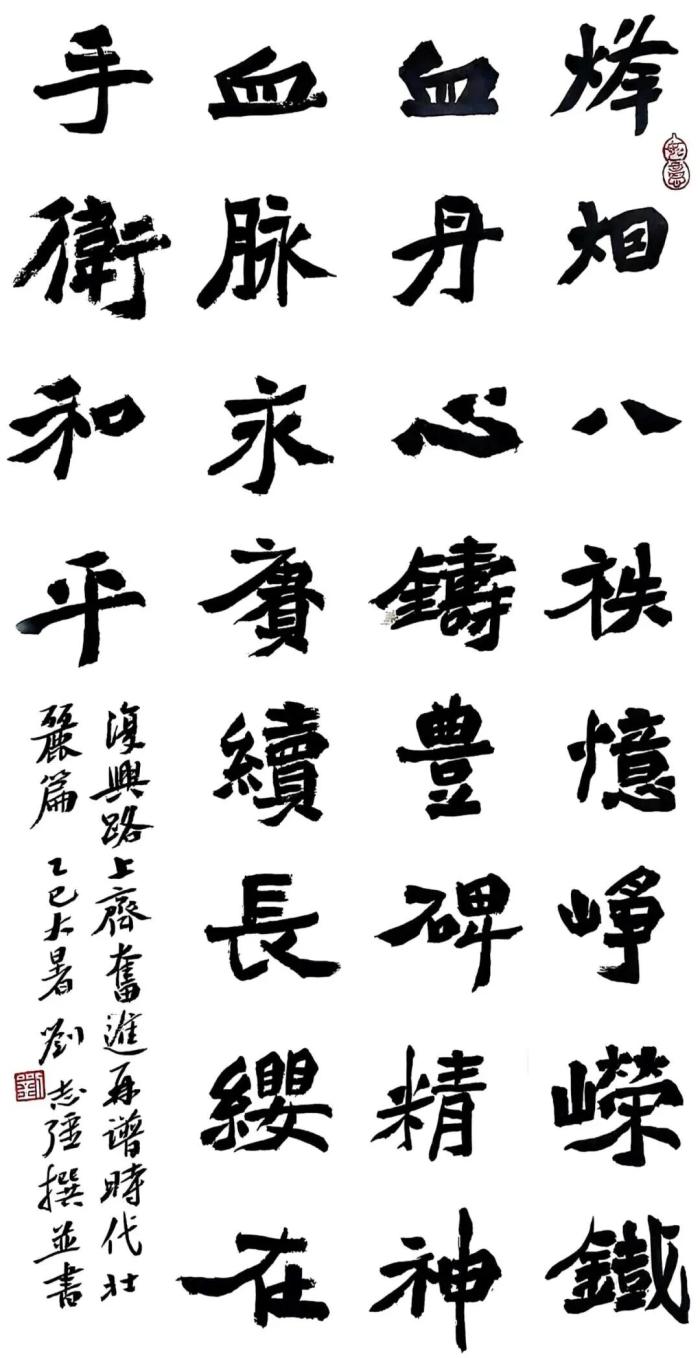 烽烟八秩憶崢嶸鐵
血丹心鑄豐碑精神
血脉永賡續長纓在
手衛和平
復興路上齊奮進再譜時代壯
麗篇 乙巳大暑 劉志强撰並書
劉